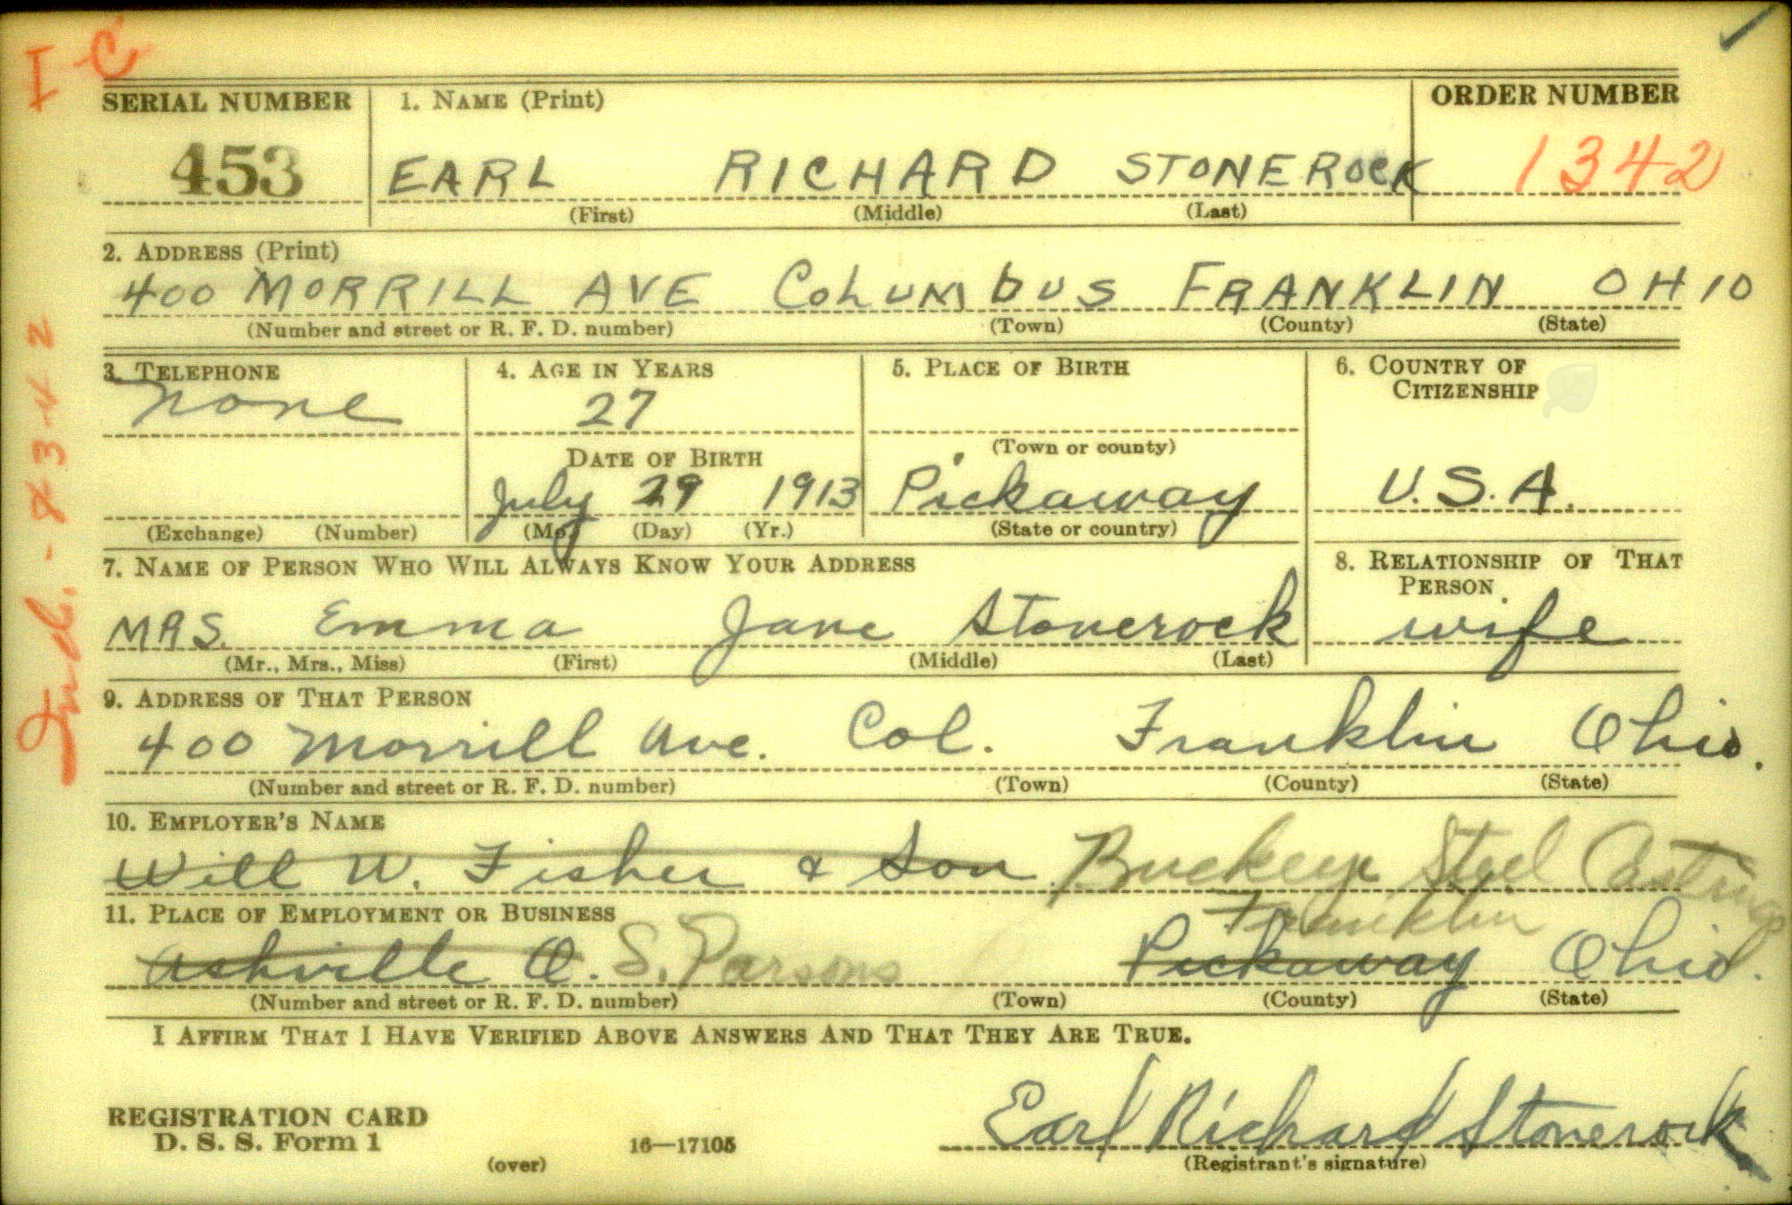 I C
SERIAL NUMBER 1. NAME (Print) ORDER NUMBER
453 EARL RICHARD STONEROCK 1342
(First) (Middle) (Last)
2. ADDRESS (Print)
400 MORRILL AVE COLUMbUS FRANKLIN OHIO
(Number and street or R. F. D. number) (Town) (County) (State)
3. TELEPHONE 4. AGE IN YEARS 5. PLACE OF BIRTH 6. COUNTRY OF
CITIZENSHIP
none 27
(Town or county)
DATE OF BIRTH
July 29 1913 Pickaway U.S.A.
(Exchange) (Number) (Mo.) (Day) (Yr.) (State or country)
7. NAME OF PERSON WHO WILL ALWAYS KNOW YOUR ADDRESS 8. RELATIONSHIP OF THAT
PERSON
MRS. Emma Jane Stonerock wife
(Mr., Mrs., Miss) (First) (Middle) (Last)
9. ADDRESS OF THAT PERSON
400 Morrill Ave. Col. Franklin Ohio.
(Number and street or R. F. D. number) (Town) (County) (State)
10. EMPLOYER'S NAME
Will W. Fisher & Son Buckeye Steel Castings
11. PLACE OF EMPLOYMENT OR BUSINESS Franklin
Ashville O. S. Parsons Pickaway Ohio.
(Number and street or R. F. D. number) (Town) (County) (State)
I AFFIRM THAT I HAVE VERIFIED ABOVE ANSWERS AND THAT THEY ARE TRUE.
REGISTRATION CARD
D. S. S. Form 1 16—17105 Earl Richard Stonerock
(over) (Registrant's signature)